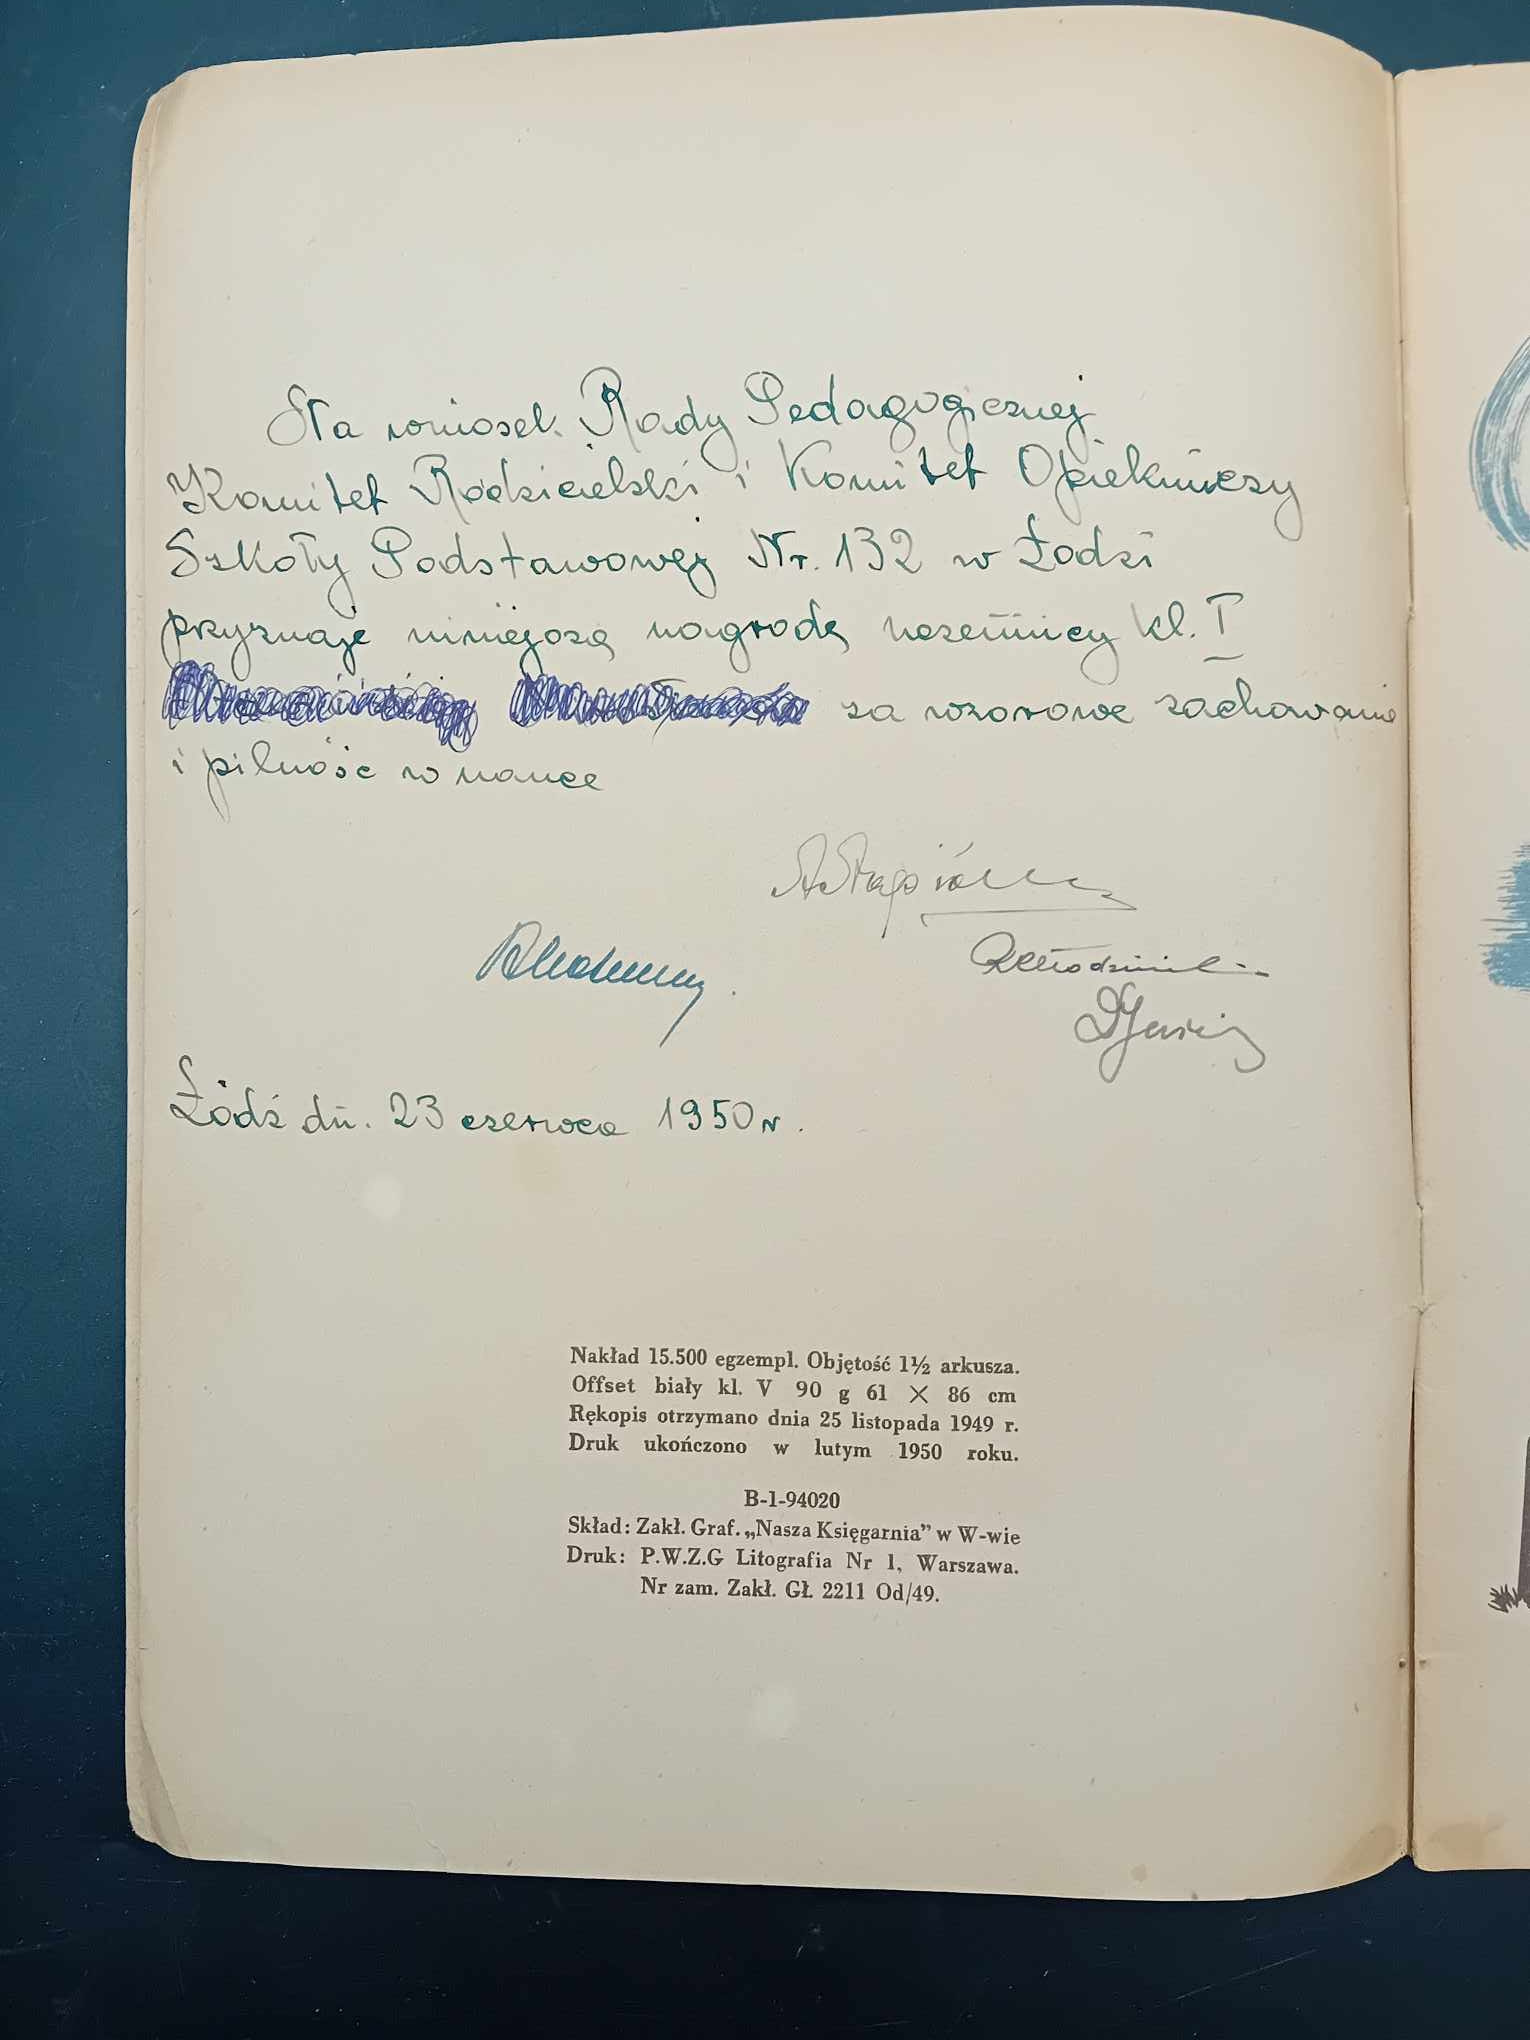 Na wniosek Rady Pedagogicznej
Komitet Rodzicielski i Komitet Opiekuńczy
Szkoły Podstawowej Nr. 132 w Łodzi
przyznaje niniejszą nagrodę uczennicy kl. I
za wzorowe zachowanie
i pilność w nauce
Łódź dn. 23 czerwca 1950 r.
Nakład 15.500 egzempl. Objętość 1½ arkusza.
Offset biały kl. V 90 g 61 × 86 cm
Rękopis otrzymano dnia 25 listopada 1949 r.
Druk ukończono w lutym 1950 roku.
B-1-94020
Skład: Zakł. Graf. „Nasza Księgarnia” w W-wie
Druk: P.W.Z.G Litografia Nr 1, Warszawa.
Nr zam. Zakł. Gł. 2211 Od/49.